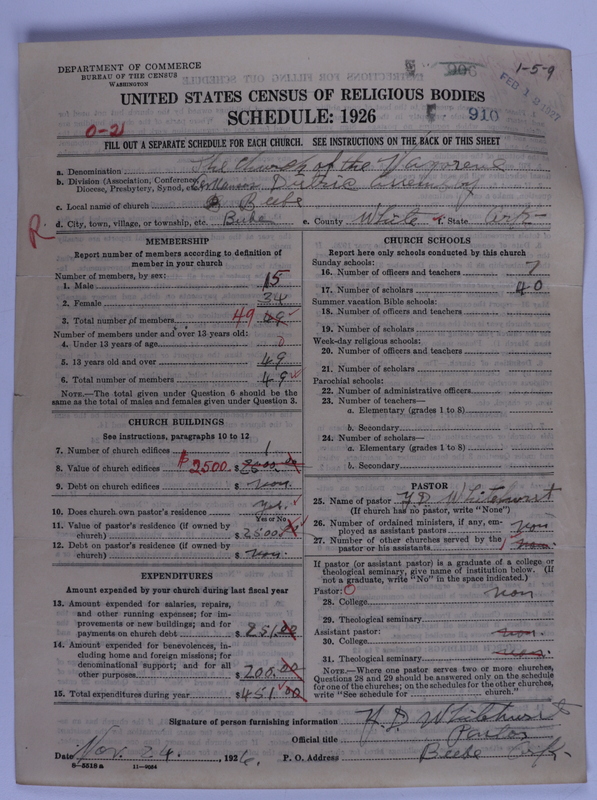 DEPARTMENT OF COMMERCE
BUREAU OF THE CENSUS
WASHINGTON
906
1-5-9
FEB 12 1927
UNITED STATES CENSUS OF RELIGIOUS BODIES
SCHEDULE: 1926
910
0-21
FILL OUT A SEPARATE SCHEDULE FOR EACH CHURCH. SEE INSTRUCTIONS ON THE BACK OF THIS SHEET
a. Denomination The Church of the Nazarene
b. Division (Association, Conference, Diocese, Presbytery, Synod, etc.)
c. Local name of church Beebe
R
d. City, town, village, or township, etc. Beebe e. County White f. State Ark
MEMBERSHIP
Report number of members according to definition of
member in your church
Number of members, by sex:
1. Male 15
2. Female 34
3. Total number of members 49 49
Number of members under and over 13 years old:
4. Under 13 years of age 0
5. 13 years old and over 49
6. Total number of members 49
NOTE.—The total given under Question 6 should be
same as the total of males and females given under Question 3.
CHURCH BUILDINGS
See instructions, paragraphs 10 to 12
7. Number of church edifices 1
8. Value of church edifices $2500. $ 2500.00
9. Debt on church edifices $ non.
10. Does church own pastor's residence yes.
Yes or No
11. Value of pastor's residence (if owned by
church) $ 2500
12. Debt on pastor's residence (if owned by
church) $ non.
EXPENDITURES
Amount expended by your church during last fiscal year
13. Amount expended for salaries, repairs,
and other running expenses; for im-
provements or new buildings; and for
payments on church debt $ 251.00
14. Amount expended for benevolences, in-
cluding home and foreign missions; for
denominational support; and for all
other purposes $ 200.00
15. Total expenditures during year $ 451.00
CHURCH SCHOOLS
Report here only schools conducted by this church
Sunday schools:
16. Number of officers and teachers 7
17. Number of scholars 40
Summer vacation Bible schools:
18. Number of officers and teachers
19. Number of scholars
Week-day religious schools:
20. Number of officers and teachers
21. Number of scholars
Parochial schools:
22. Number of administrative officers
23. Number of teachers—
a. Elementary (grades 1 to 8)
b. Secondary
24. Number of scholars—
a. Elementary (grades 1 to 8)
b. Secondary
PASTOR
25. Name of pastor Y D Whitehurst
(If church has no pastor, write "None")
26. Number of ordained ministers, if any, em-
ployed as assistant pastors non
27. Number of other churches served by the
pastor or his assistants 1 non.
If pastor (or assistant pastor) is a graduate of a college or
theological seminary, give name of institution below. (If
not a graduate, write "No" in the space indicated.)
Pastor: 0
28. College non
29. Theological seminary
Assistant pastor: non.
30. College
31. Theological seminary non.
NOTE.—Where one pastor serves two or more churches,
Questions 28 and 29 should be answered only on the schedule
for one of the churches; on the schedules for the other churches,
write "See schedule for church."
Signature of person furnishing information Y. D. Whitehurst
Official title Pastor
Date Nov. 24, 1926. P. O. Address Beebe Ark
8-5518a 11-9654